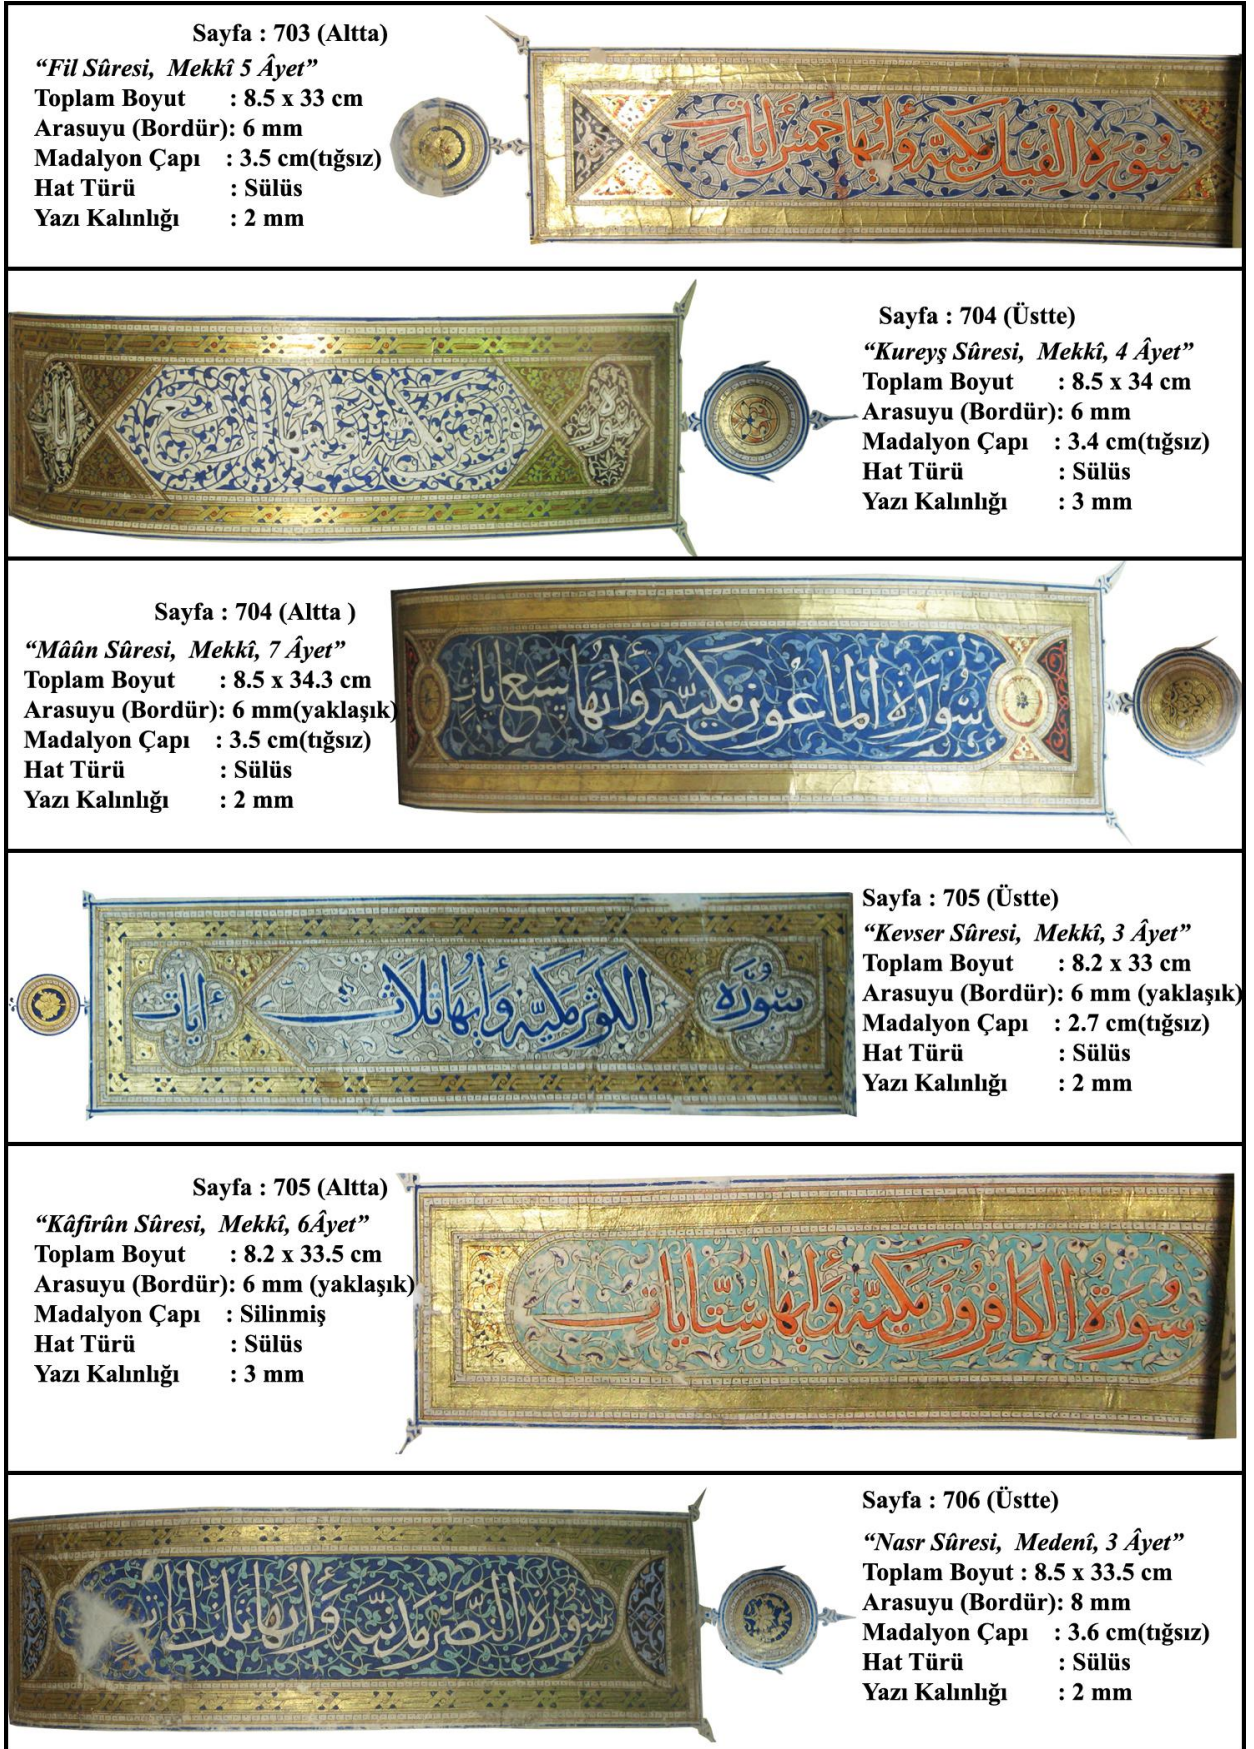 Sayfa : 703 (Altta)
“Fil Sûresi, Mekkî 5 Âyet”
Toplam Boyut : 8.5 x 33 cm
Arasuyu (Bordür): 6 mm
Madalyon Çapı : 3.5 cm(tığsız)
Hat Türü : Sülüs
Yazı Kalınlığı : 2 mm
سورة الفيل مكية وأيها خمس أيات
Sayfa : 704 (Üstte)
“Kureyş Sûresi, Mekkî, 4 Âyet”
Toplam Boyut : 8.5 x 34 cm
Arasuyu (Bordür): 6 mm
Madalyon Çapı : 3.4 cm(tığsız)
Hat Türü : Sülüs
Yazı Kalınlığı : 3 mm
سورة
Sayfa : 704 (Altta )
“Mâûn Sûresi, Mekkî, 7 Âyet”
Toplam Boyut : 8.5 x 34.3 cm
Arasuyu (Bordür): 6 mm(yaklaşık)
Madalyon Çapı : 3.5 cm(tığsız)
Hat Türü : Sülüs
Yazı Kalınlığı : 2 mm
سورة الماعون مكية وأيها سبع أيات
Sayfa : 705 (Üstte)
“Kevser Sûresi, Mekkî, 3 Âyet”
Toplam Boyut : 8.2 x 33 cm
Arasuyu (Bordür): 6 mm (yaklaşık)
Madalyon Çapı : 2.7 cm(tığsız)
Hat Türü : Sülüs
Yazı Kalınlığı : 2 mm
سورة الكوثر مكية وأيها ثلاث أيات
Sayfa : 705 (Altta)
“Kâfirûn Sûresi, Mekkî, 6Âyet”
Toplam Boyut : 8.2 x 33.5 cm
Arasuyu (Bordür): 6 mm (yaklaşık)
Madalyon Çapı : Silinmiş
Hat Türü : Sülüs
Yazı Kalınlığı : 3 mm
سورة الكافرون مكية وأيها ست أيات
Sayfa : 706 (Üstte)
“Nasr Sûresi, Medenî, 3 Âyet”
Toplam Boyut : 8.5 x 33.5 cm
Arasuyu (Bordür): 8 mm
Madalyon Çapı : 3.6 cm(tığsız)
Hat Türü : Sülüs
Yazı Kalınlığı : 2 mm
سورة النصر مدنية وأيها ثلث أيات